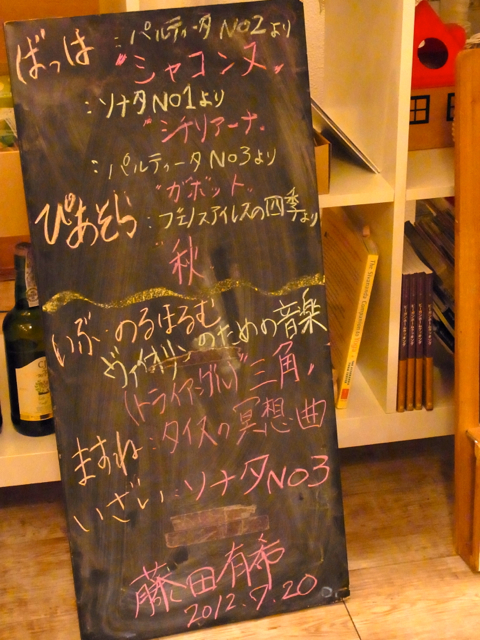 ばっは：パルティータNO2より
"シャコンヌ"
：ソナタNO1より
"シチリアーナ"
：パルティータNO3より
"ガボット"
ぴあそら：ブエノスアイレスの四季より
"秋"
いぶ・のるほるむ
ヴァイオリンのための音楽
(トライアングル)三角
ますね：タイスの冥想曲
いざい：ソナタNO3
藤田有希
2012.7.20